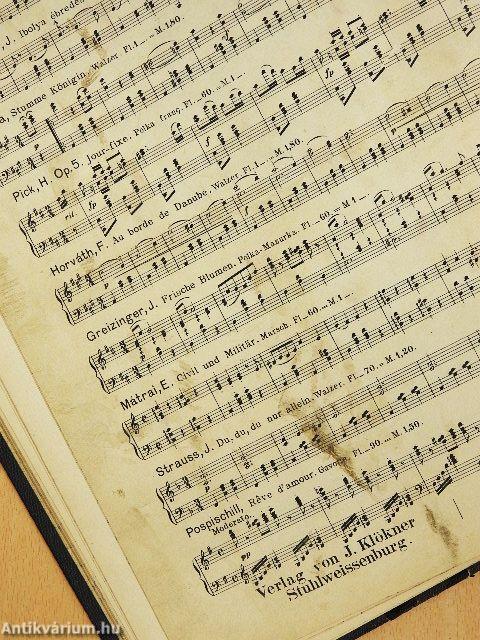 J. Ibolya ébred
Stumme Königin, Walzer. Fl. 1.— = M 1.80.
Pick, H. Op. 5. Jour-fixe. Polka franç. Fl. —.60. = M 1.—.
rit.
fp
p
Horváth, F. Au borde de Danube, Walzer. Fl. 1.— = M 1.80.
p
Greizinger, J. Frische Blumen. Polka-Mazurka. Fl. —.60. = M 1.—.
Mátrai, E. Civil und Militär-Marsch. Fl. —.60. = M 1.—.
Strauss, J. Du, du, du nur allein. Walzer. Fl. —.70. = M 1.20.
Pospischill, Rêve d'amour. Gavotte. Fl. —.90. = M 1.50.
Moderato.
pp
Verlag von J. Klökner
Stuhlweissenburg.
Antikvárium.hu